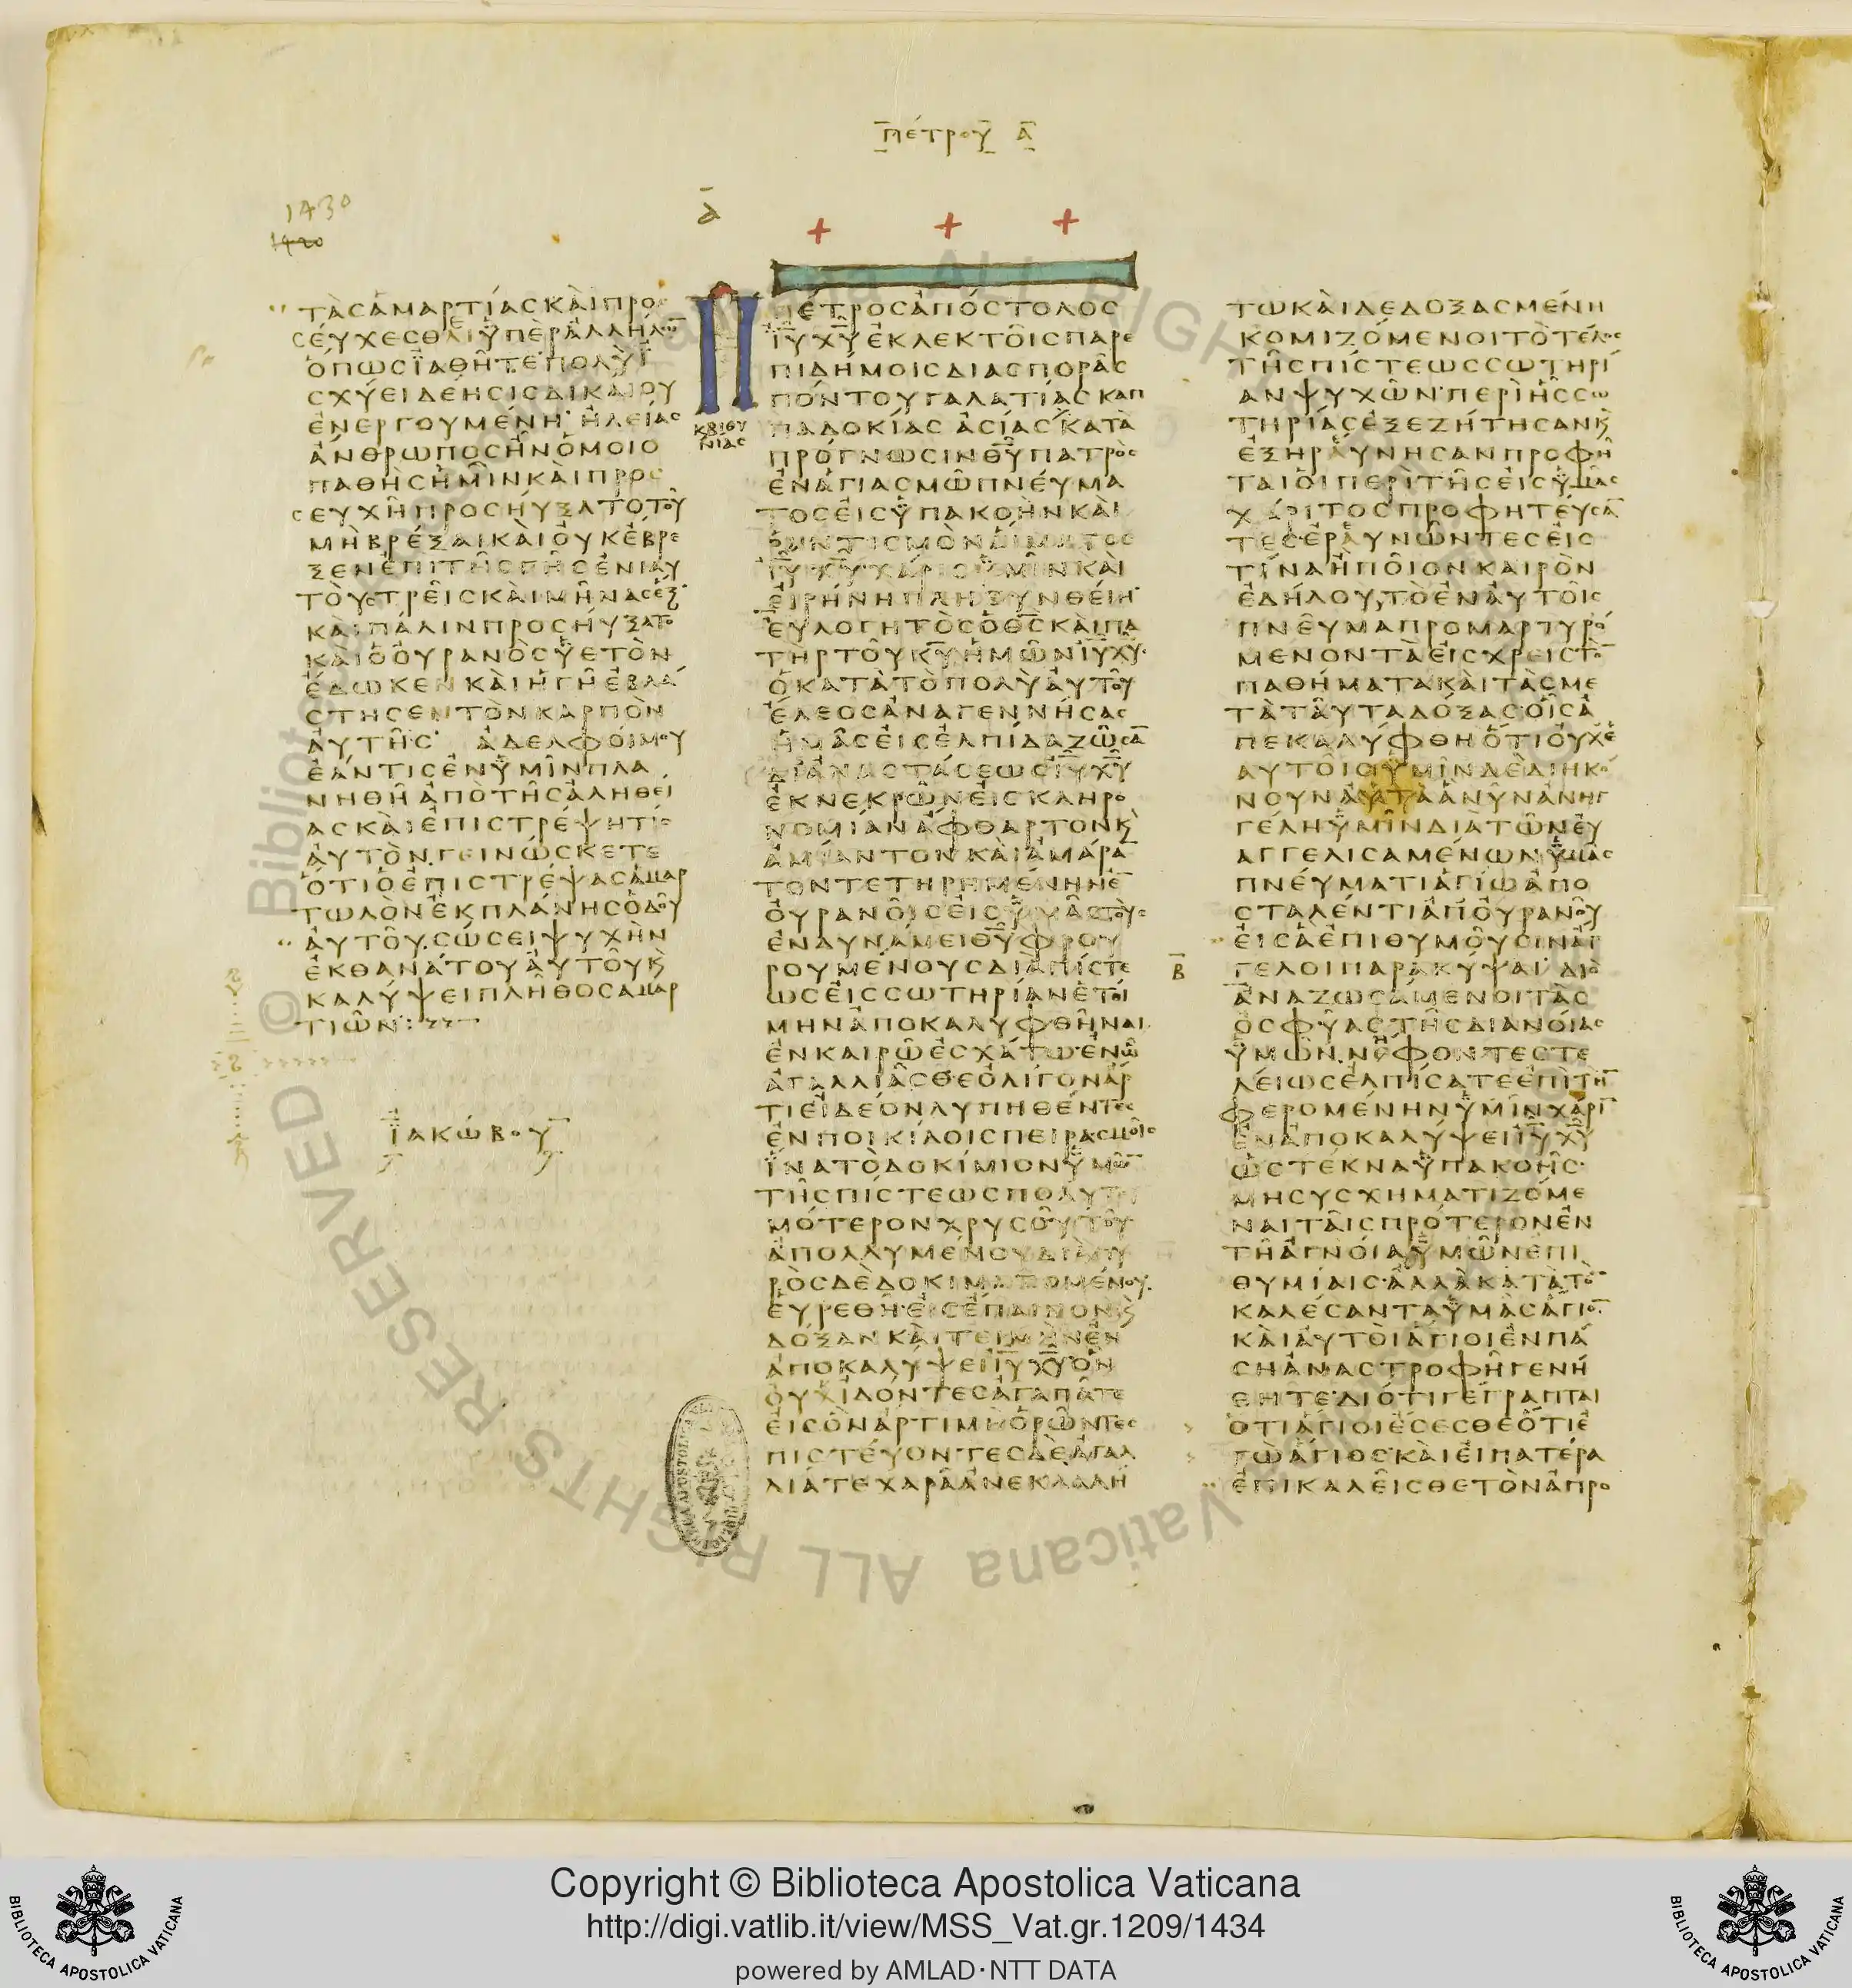 πέτρου α
1430
1420
α
τὰσἁμαρτίασκαὶπρο
σεύχεσθεὑπὲρἀλλήλω̅
ὅπωσϊαθῆτε·πολὺϊ
σχύειδέησισδικαίου
ἐνεργουμένη·ἠλείασ
ἄνθρωποσἦνὁμοιο
παθὴσἡμῖνκαὶπροσ
ευχῆπροσηύξατοτοῦ
μὴβρέξαικαὶοὐκἔβρε
ξενἐπιτῆσγῆσἐνιαυ
τοὺστρεῖσκαὶμῆνασἕξ·
καὶπάλινπροσηύξατο
καὶὁοὐρανὸσὑετὸν
ἔδωκενκαὶἡγῆἐβλά
στησεντὸνκαρπὸν
αὐτῆσ· ἀδελφοίμου
ἐάντισἐνὑμῖνπλα
νηθῆἀπὸτῆσἀληθεί
ασκαὶἐπιστρέψητισ
αὐτὸν.γεινώσκετε
ὅτιὁἐπιστρέψασἁμαρ
τωλὸνἐκπλάνησὁδοῦ
αὐτοῦ.σώσειψυχὴν
ἐκθανάτουαὐτοῦκ̀
καλύψειπλῆθοσαμαρ
τιῶν:
ϊακώβου
κβιθυ
νίασ
πέτροσἀπόστολοσ
ι̅υ̅χ̅υ̅ἐκλεκτοῖσπαρε
πιδήμοισδιασπορᾶσ
πόντουγαλατίασκαπ
παδοκίασἀσίασκατὰ
πρόγνωσινθ̅υ̅πατρὸσ
ἐνἁγιασμῶπνεύμα
τοσεἰσὑπακοὴνκαὶ
ῥαντισμὸναἵματοσ
ι̅υ̅χ̅υ̅χάρισὑμῖνκαὶ
εἰρήνηπληθυνθείη·
εὐλογητὸσὁθ̅σ̅καὶπα
τὴρτοῦκ̅υ̅ἡμῶνι̅υ̅χ̅υ̅·
ὁκατὰτὸπολὺαὐτοῦ
ἔλεοσἀναγεννήσασ
ἡμᾶσεἰσἐλπίδαζῶσα̅
διἀναστάσεωσι̅υ̅χ̅υ̅
ἐκνεκρῶνεἰσκληρο
νομίανἄφθαρτονκ̀
ἀμίαντονκαὶἀμάρα̅
τοντετηρημένηνἐ̅
οὐρανοῖσεἰσὑμᾶστοὺσ
ἐνδυνάμειθ̅υ̅φρου
ρουμένουσδιὰπίστε
ωσεἰσσωτηρίανἑτοί
μηνἀποκαλυφθῆναι
ἐνκαιρῶἐσχάτω·ἐνὧ
ἀγαλλιᾶσθεὀλίγονἄρ
τιεἰδέονλυπηθέντεσ
ἐνποικίλοισπειρασμοῖσ
ἵνατὸδοκίμιονὑμῶ̅
τῆσπίστεωσπολυτι
μότερονχρυσοῦτοῦ
ἀπολλυμένουδιὰπυ
ρὸσδὲδοκιμαζομένου.
εὑρεθῆ·εἰσἔπαινονκ̀
δόξανκαὶτειμὴνἐν
ἀποκαλύψειι̅υ̅χ̅υ̅ὃν
οὐχϊδόντεσἀγαπᾶτε
εἰσὃνἄρτιμὴὁρῶντεσ
πιστεύοντεσδὲἀγαλ
λιᾶτεχαρᾶἀνεκλαλή
β
τωκαὶδεδοξασμένη
κομιζόμενοιτὸτέλοσ
τῆσπίστεωσσωτηρί
ανψυχῶν·περὶἧσσω
τηρίασἐξεζήτησανκ̀
ἐξηραύνησανπροφῆ
ταιοἱπερὶτῆσεἰσὑμᾶσ
χάριτοσπροφητεύσα̅
τεσἐραυνῶντεσεἰσ
τίναἢποῖονκαιρὸν
ἐδήλουτὸἐναὐτοῖσ
πνεῦμαπρομαρτυρό
μενοντὰεἰσχρειστὸ̅
παθήματακαὶτὰσμε
τὰταῦταδόξασ·οἷσἀ
πεκαλύφθηὅτιοὐχἑ
αυτοῖσὑμῖνδὲδιηκό
νουναὐτὰἃνῦνἀνηγ
γέληὑμῖνδιὰτῶνεὐ
αγγελισαμένωνὑμᾶσ
πνεύματιἁγίωἀπο
σταλέντιἀπ̓οὐρανοῦ
εἰσἃἐπιθυμοῦσινἄγ
γελοιπαρακύψαι·διὸ
ἀναζωσάμενοιτὰσ
ὀσφῦαστῆσδιανοίασ
ὑμῶν.νήφοντεστε
λείωσἐλπίσατεἐπὶτὴ̅
φερομένηνὑμῖνχάρι̅
ἐνἀποκαλύψειι̅υ̅χ̅υ̅
ὡστέκναὑπακοῆσ·
μησυσχηματιζόμε
ναιταῖσπρότερονἐν
τῆἀγνοίαὑμῶνἐπι
θυμίαισ·ἀλλὰκατὰτὸ̅
καλέσανταὑμᾶσἅγιο̅
καὶαὐτοὶἅγιοιἐνπά
σηἀναστροφῆγενή
θητε·διότιγέγραπται
ὅτιἅγιοιἔσεσθεὅτιἐ
γὼἅγιοσ·καὶεἰπατέρα
ἐπικαλεῖσθετὸνἀπρο
Copyright © Biblioteca Apostolica Vaticana
http://digi.vatlib.it/view/MSS_Vat.gr.1209/1434
powered by AMLAD·NTT DATA
BIBLIOTECA APOSTOLICA VATICANA
BIBLIOTECA APOSTOLICA VATICANA
© Biblioteca Apostolica Vaticana ALL RIGHTS RESERVED